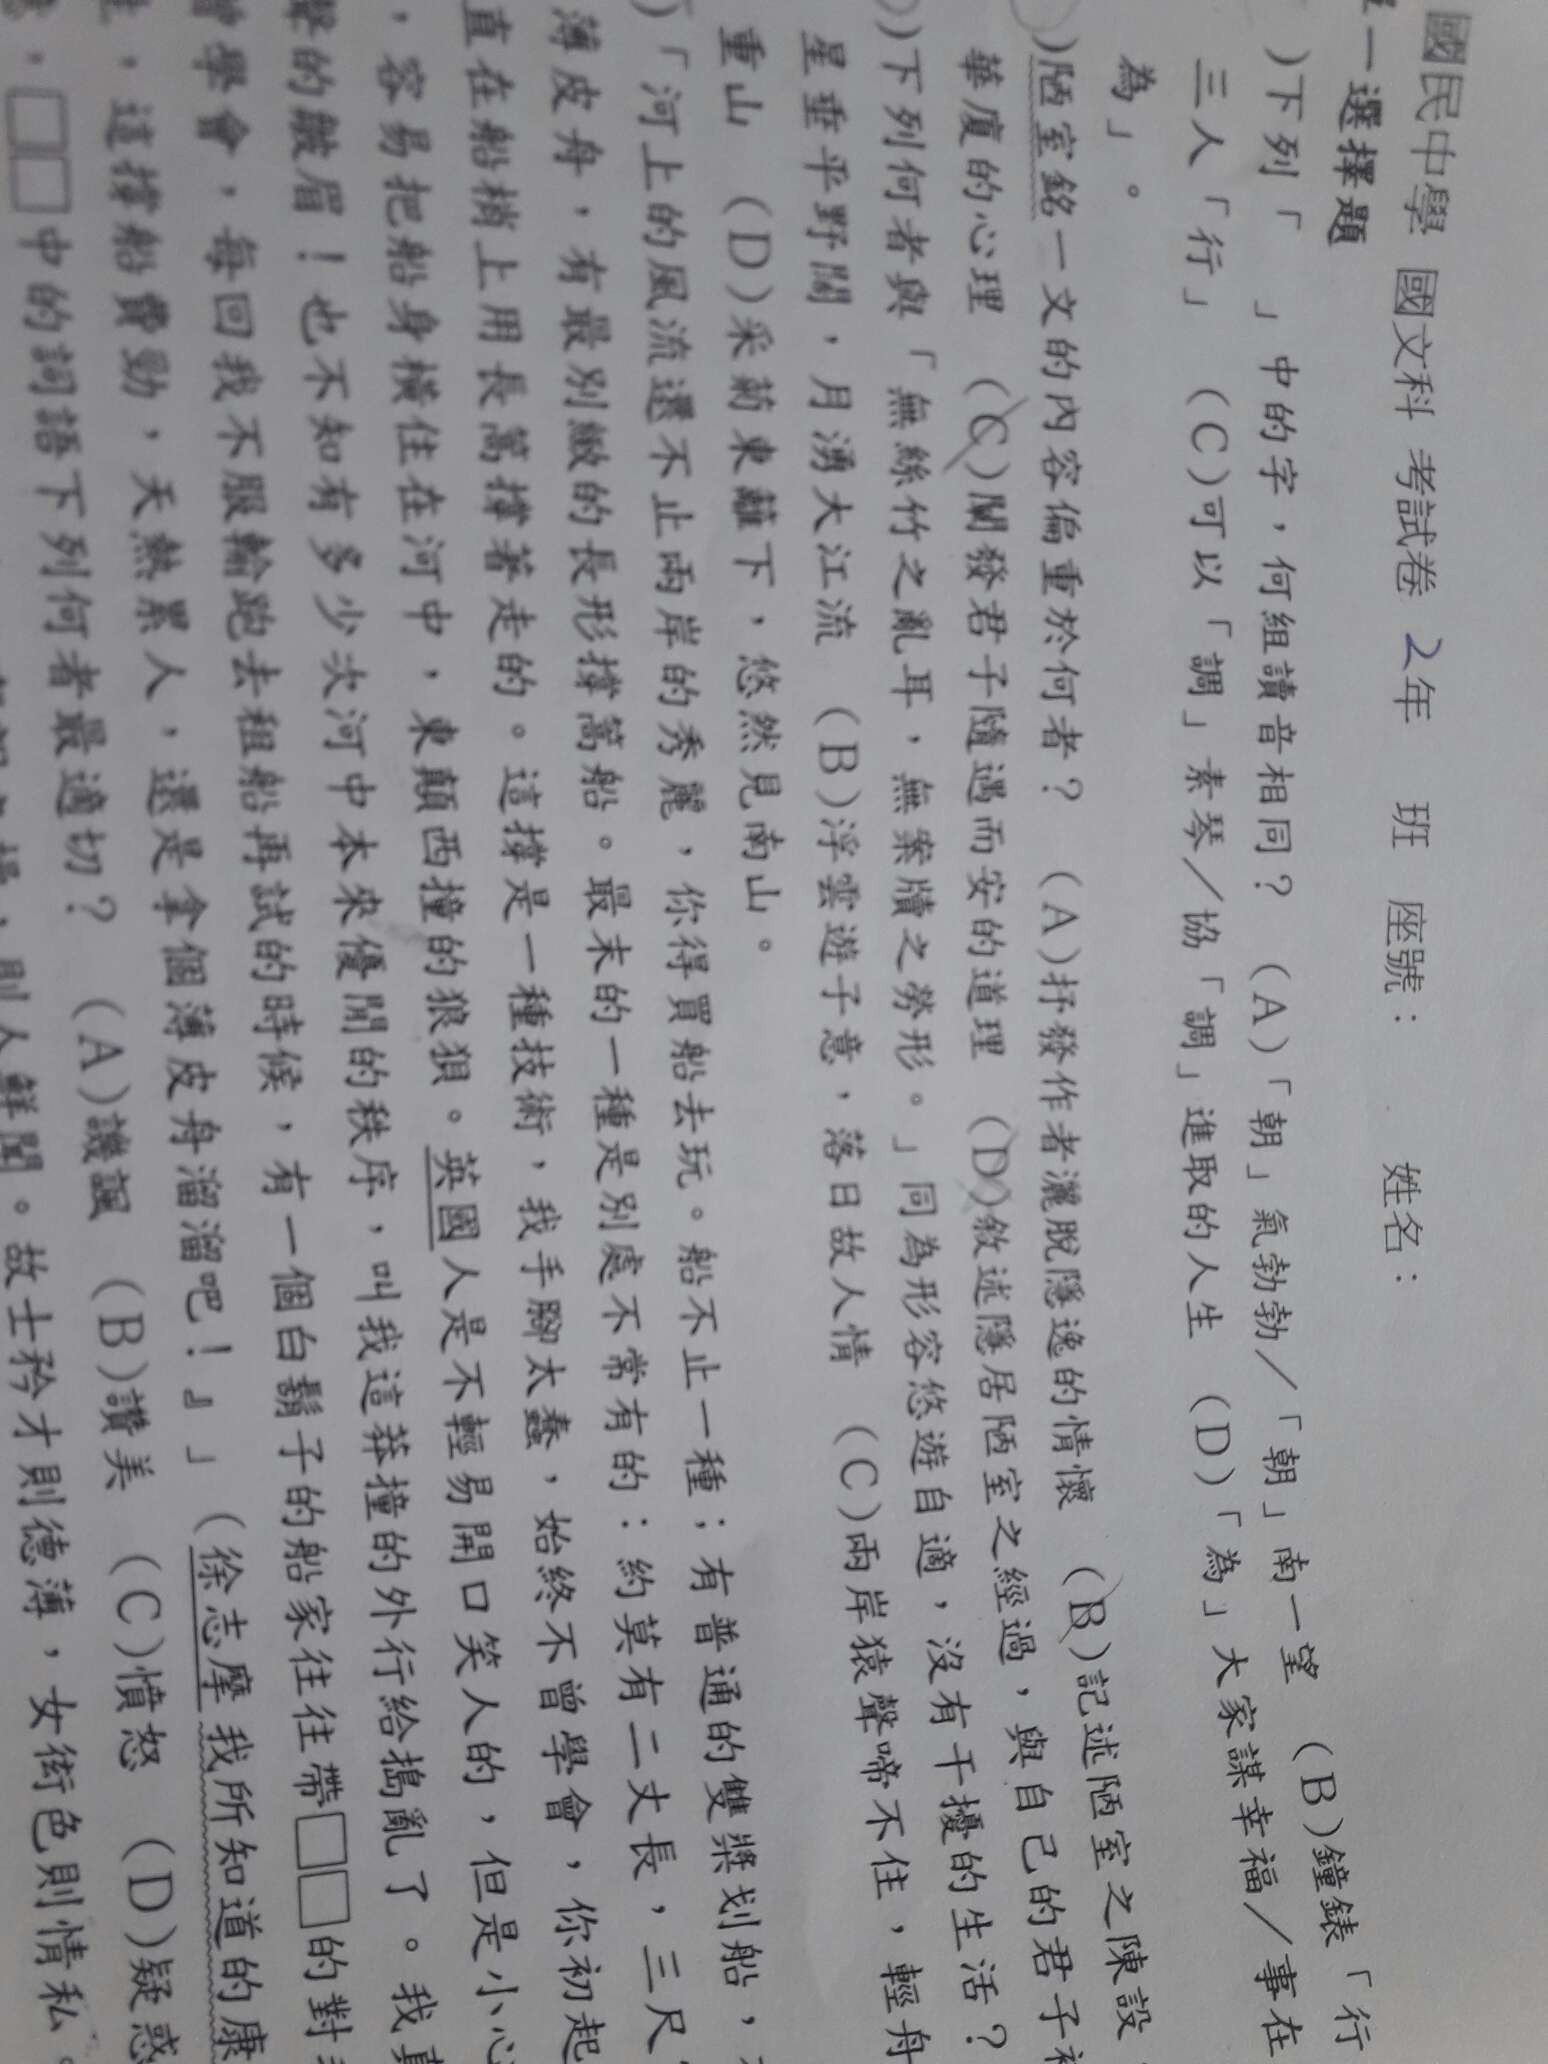 國民中學 國文科 考試卷 2年 班 座號： 姓名：
一選擇題
)下列「 」中的字，何組讀音相同？ (A)「朝」氣勃勃／「朝」南一望 (B)鐘錶「行
三人「行」 (C)可以「調」素琴／協「調」進取的人生 (D)「為」大家謀幸福／事在
為」。
)陋室銘一文的內容偏重於何者？ (A)抒發作者灑脫隱逸的情懷 (B)記述陋室之陳設
華廈的心理 (C)闡發君子隨遇而安的道理 (D)敘述隱居陋室之經過，與自己的君子
)下列何者與「無絲竹之亂耳，無案牘之勞形。」同為形容悠遊自適，沒有干擾的生活？
星垂平野闊，月湧大江流 (B)浮雲遊子意，落日故人情 (C)兩岸猿聲啼不住，輕舟
重山 (D)采菊東籬下，悠然見南山。
)「河上的風流還不止兩岸的秀麗，你得買船去玩。船不止一種；有普通的雙槳划船，
薄皮舟，有最別緻的長形撐篙船。最末的一種是別處不常有的：約莫有二丈長，三尺
直在船梢上用長篙撐著走的。這撐是一種技術，我手腳太蠢，始終不曾學會，你初起
，容易把船身橫住在河中，東顛西撞的狼狽。英國人是不輕易開口笑人的，但是小心
聲的皺眉！也不知有多少次河中本來優閒的秩序，叫我這莽撞的外行給搗亂了。我真
曾學會，每回我不服輸跑去租船再試的時候，有一個白鬍子的船家往往帶□□的對
，這撐船費勁，天熱累人，還是拿個薄皮舟溜溜吧！』」(徐志摩 我所知道的康
，□□中的詞語下列何者最適切？ (A)譏諷 (B)讚美 (C)憤怒 (D)疑惑
，則人鮮聞。故士矜才則德薄，女衒色則情私。